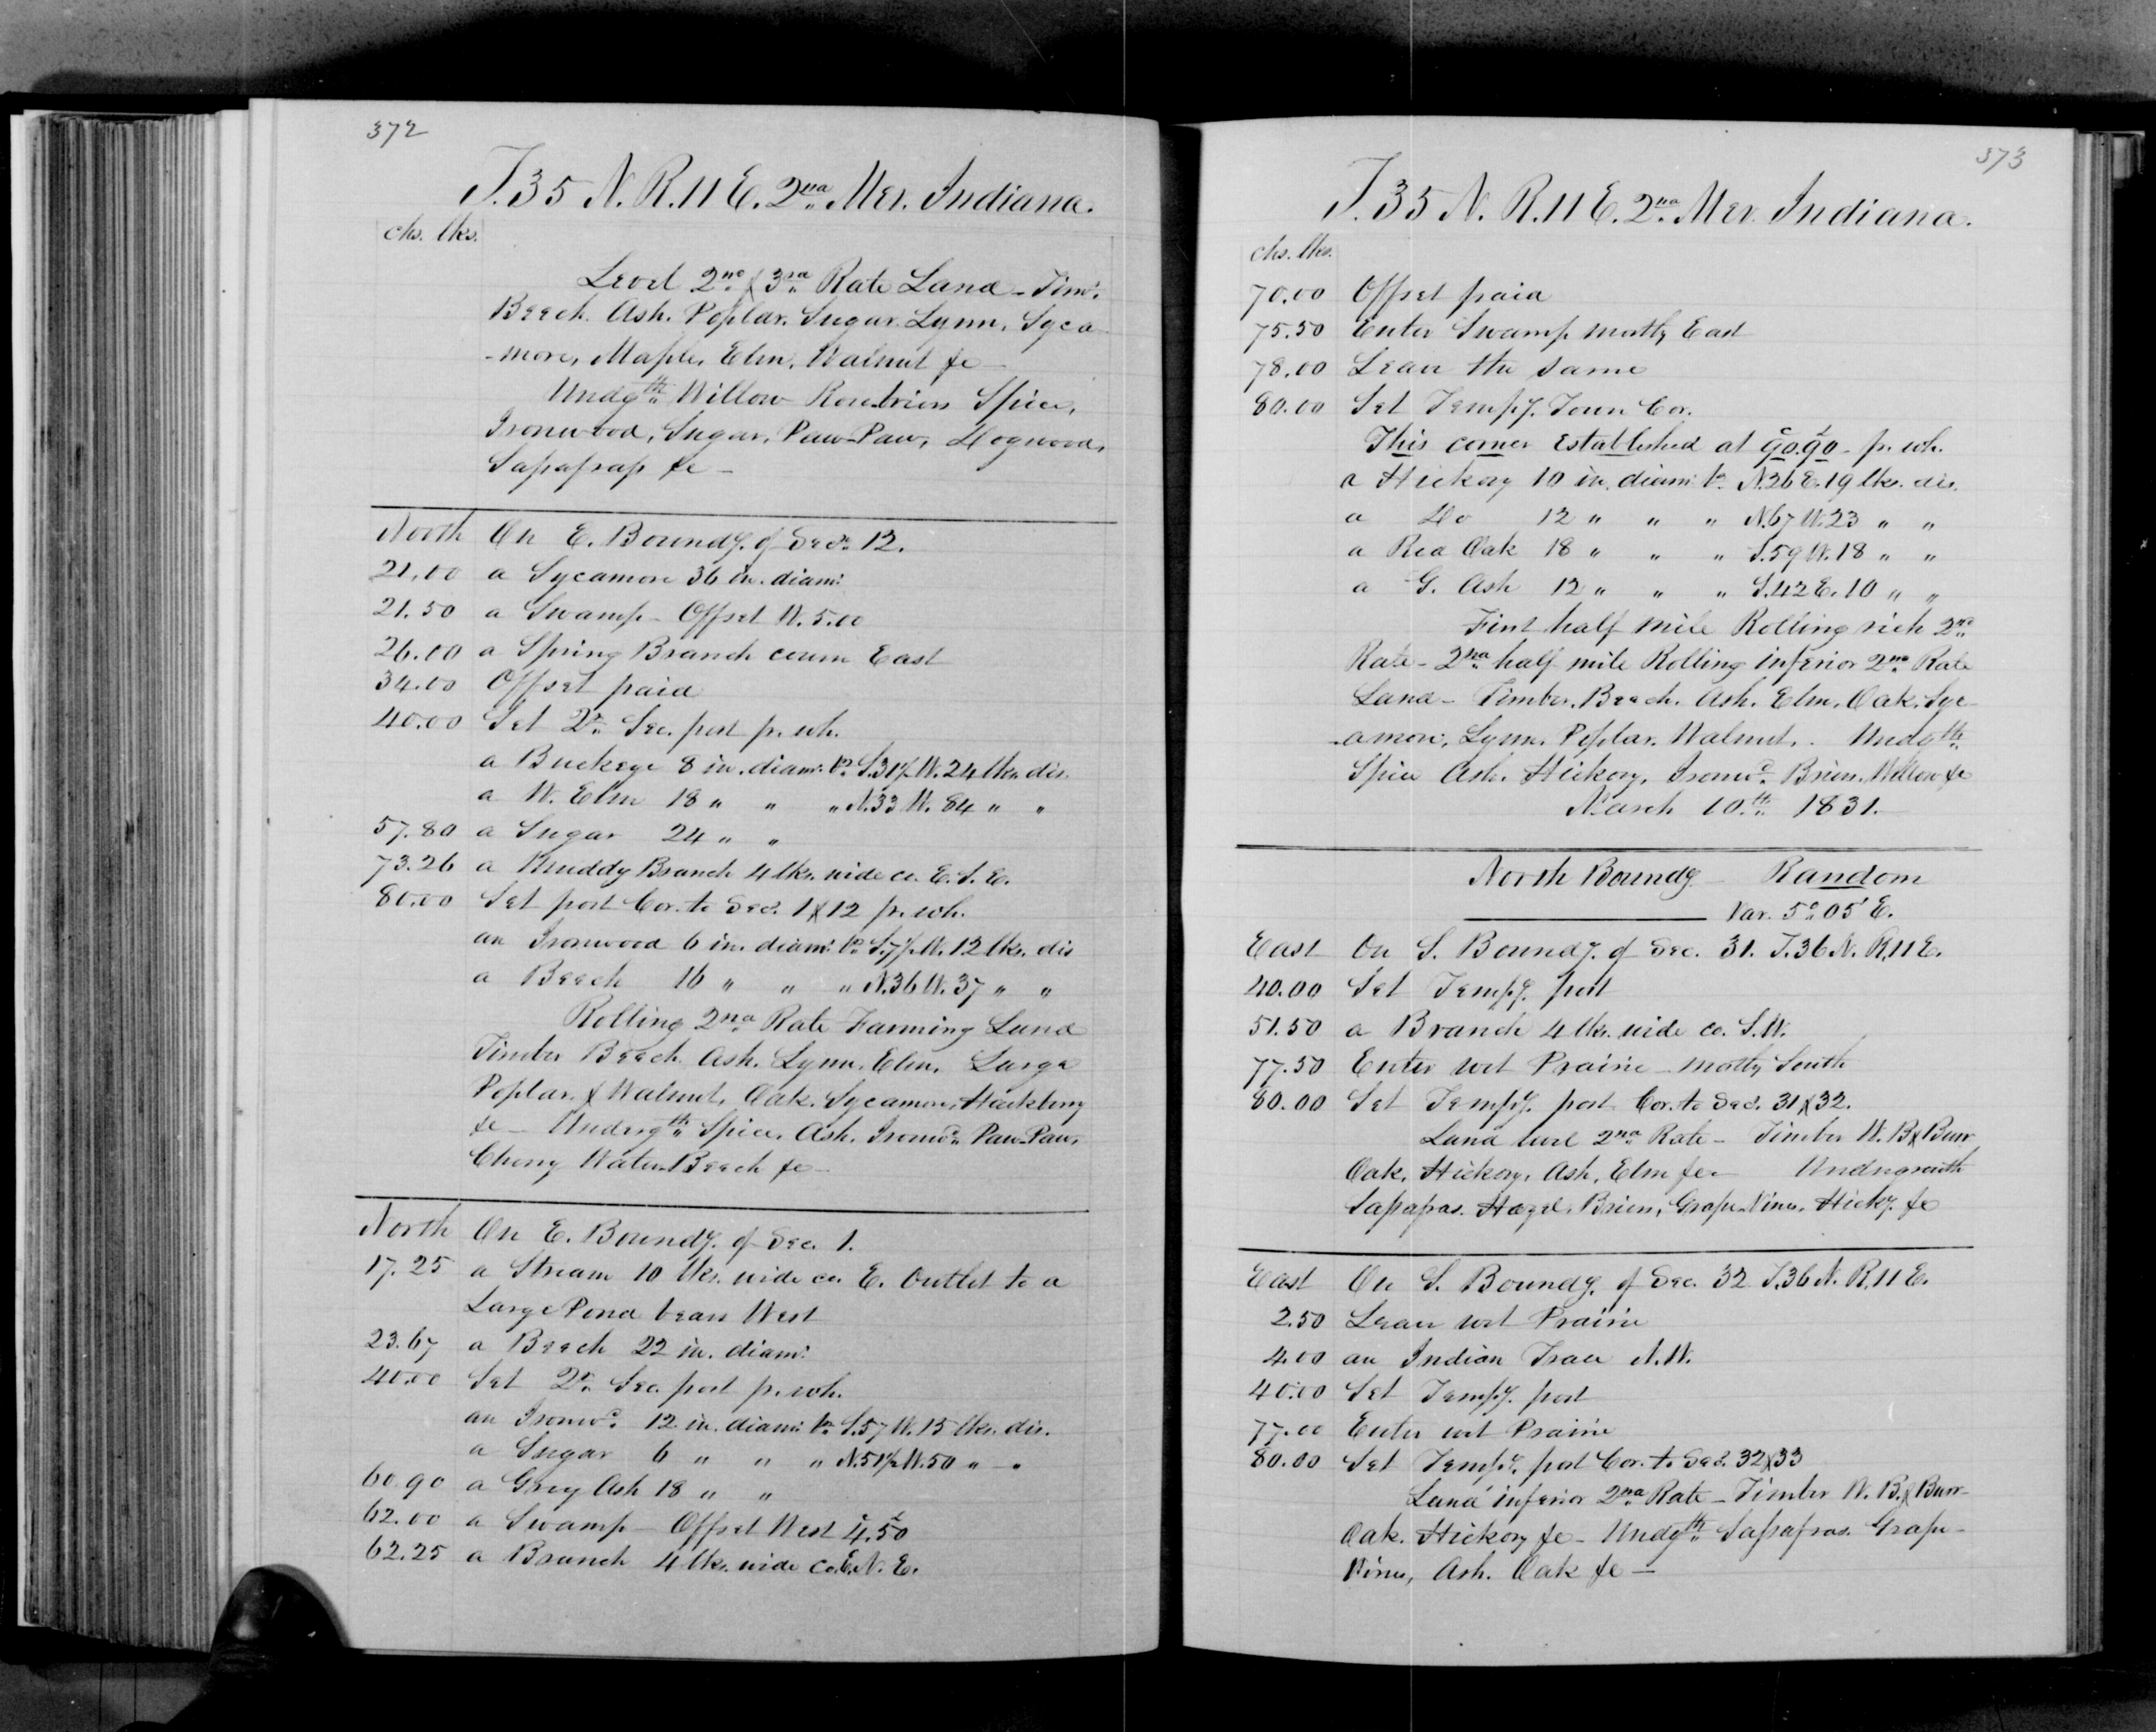 372
T. 35 N. R. 11 E. 2nd Mer. Indiana.
chs. lks.
Level 2nd & 3rd Rate Land - Timr.
Beech. Ash. Poplar. Sugar. Lynn, Syca
-more, Maple, Elm, Walnut &c -
Undgth Willow Rosebriers Spice,
Ironwood, Sugar, Paw-Paw, Dogwood,
Sassafrass &c -
North On E. Boundy. of Sec. 12.
21.00 a Sycamore 36 in. diam:
21.50 a Swamp - Offset W. 5.00
26.00 a Spring Branch course East
34.00 Offset paid
40.00 Set Qr. Sec. post pr. wh.
a Buckeye 8 in. diam. br. S. 31½ W. 24 lks. dis.
a W. Elm 18 " " " N. 33 W. 84 " "
57.80 a Sugar 24 " "
73.26 a Muddy Branch 4 lks. wide co. E. S. E.
80.00 Set post Cor. to Secs. 1 & 12 pr. wh.
an Ironwood 6 in. diam: br. S. 7½ W. 12 lks. dis
a Beech 16 " " " N. 36 W. 37 " "
Rolling 2nd Rate Farming Land
Timber Beech. Ash. Lynn. Elm. Large
Poplar. & Walnut, Oak. Sycamore, Hackberry
&c - Undergth Spice. Ash. Ironwd. Paw-Paw,
Cherry Water-Beech &c -
North On E. Boundy. of Sec. 1.
17.25 a Stream 10 lks. wide co. E. Outlet to a
Large Pond bears West
23.67 a Beech 22 in. diam:
40.00 Set Qr. Sec. post pr. wh.
an Ironwd. 12 in. diam: br. S. 57 W. 15 lks. dis.
a Sugar 6 " " " N. 51½ W. 50 " "
60.90 a Grey Ash 18 " "
62.00 a Swamp - Offset West 4.50
62.25 a Branch 4 lks. wide co. E. N. E.
373
T. 35 N. R. 11 E. 2nd Mer. Indiana.
chs. lks.
70.00 Offset paid
75.50 Enter Swamp mostly East
78.00 Leave the same
80.00 Set Tempy. Town Cor.
This corner Established at 90.90 - pr. wh.
a Hickory 10 in. diam: br. N. 26 E. 19 lks. dis.
a Do 12 " " " N. 67 W. 23 " "
a Red Oak 18 " " " S. 59 W. 18 " "
a G. Ash 12 " " " S. 42 E. 10 " "
First half mile Rolling rich 2nd
Rate - 2nd half mile Rolling inferior 2nd Rate
Land - Timber, Beech. Ash. Elm. Oak. Syc
-amore, Lynn. Poplar. Walnut. - Undgth
Spice Ash. Hickory, Ironwd. Briers. Willow &c
March 10th 1831.
North Boundy. Random
Var. 5° 05' E.
East On S. Boundy. of Sec. 31. T. 36 N. R. 11 E.
40.00 Set Tempy. post
51.50 a Branch 4 lks. wide co. S. W.
77.50 Enter wet Prairie - mostly South
80.00 Set Tempy. post Cor. to Secs. 31 & 32.
Land level 2nd Rate - Timber W. B. & Burr
Oak, Hickory, Ash, Elm &c - Undergrowth
Sassafras. Hazel, Briers, Grape-Vines, Hicky. &c
East On S. Boundy. of Sec. 32 T. 36 N. R. 11 E.
2.50 Leave wet Prairie
4.00 an Indian Trace N. W.
40.00 Set Tempy. post
77.00 Enter wet Prairie
80.00 Set Tempy. post Cor. to Secs. 32 & 33
Land inferior 2nd Rate - Timber W. B. & Burr-
Oak. Hickory &c - Undgth Sassafras. Grape-
Vines, Ash. Oak &c -